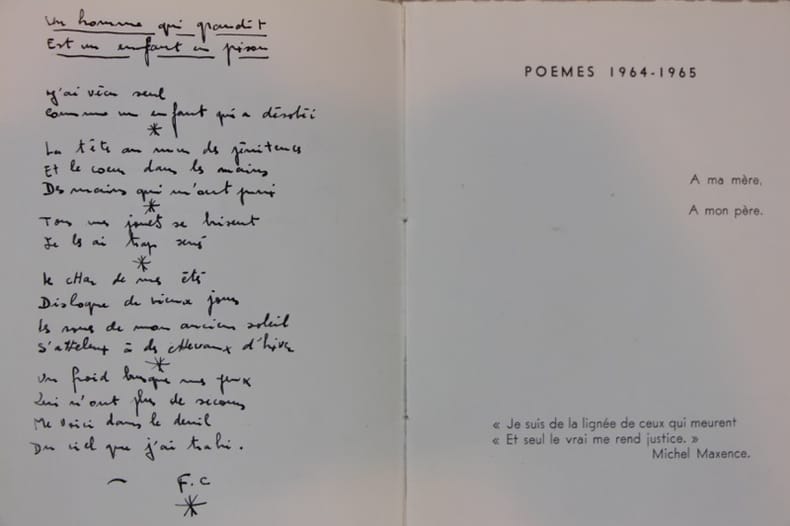 Un homme qui grandit
Est un enfant en prison
J'ai vécu seul
Comme un enfant qui a désobéi
*
La tête au mur des pénitences
Et le coeur dans les mains
Des mains qui m'ont puni
*
Tous mes jouets se brisent
Je les ai trop
*
Le char de mes étés
Disloque de vieux jours
Les roues de mon ancien soleil
S'attelent à des chevaux d'hiver
*
Un froid brusque mes yeux
Qui n'ont plus de secours
Me voici dans le deuil
Du ciel que j'ai trahi.
F.C
*
POEMES 1964-1965
A ma mère.
A mon père.
« Je suis de la lignée de ceux qui meurent
« Et seul le vrai me rend justice. »
Michel Maxence.